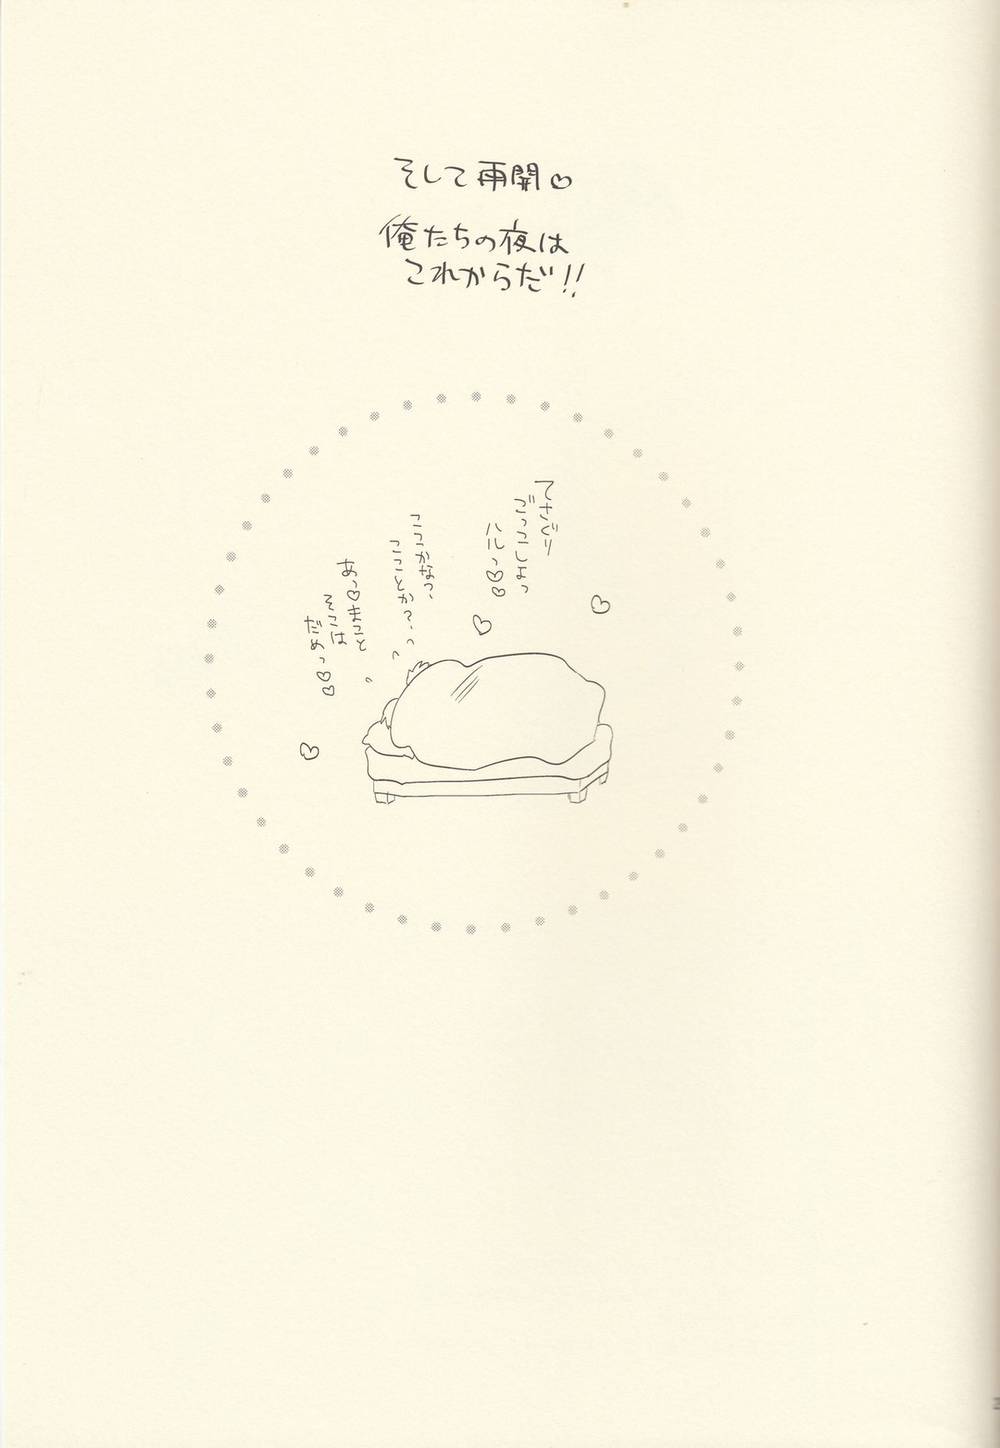 そして再開♡
俺たちの夜は
これからだ!!
てさぐり
ごっこしよっ
ハルっ♡♡
ここかなっ、
こことか?
あっ♡まこと
そこは
だめっ♡♡